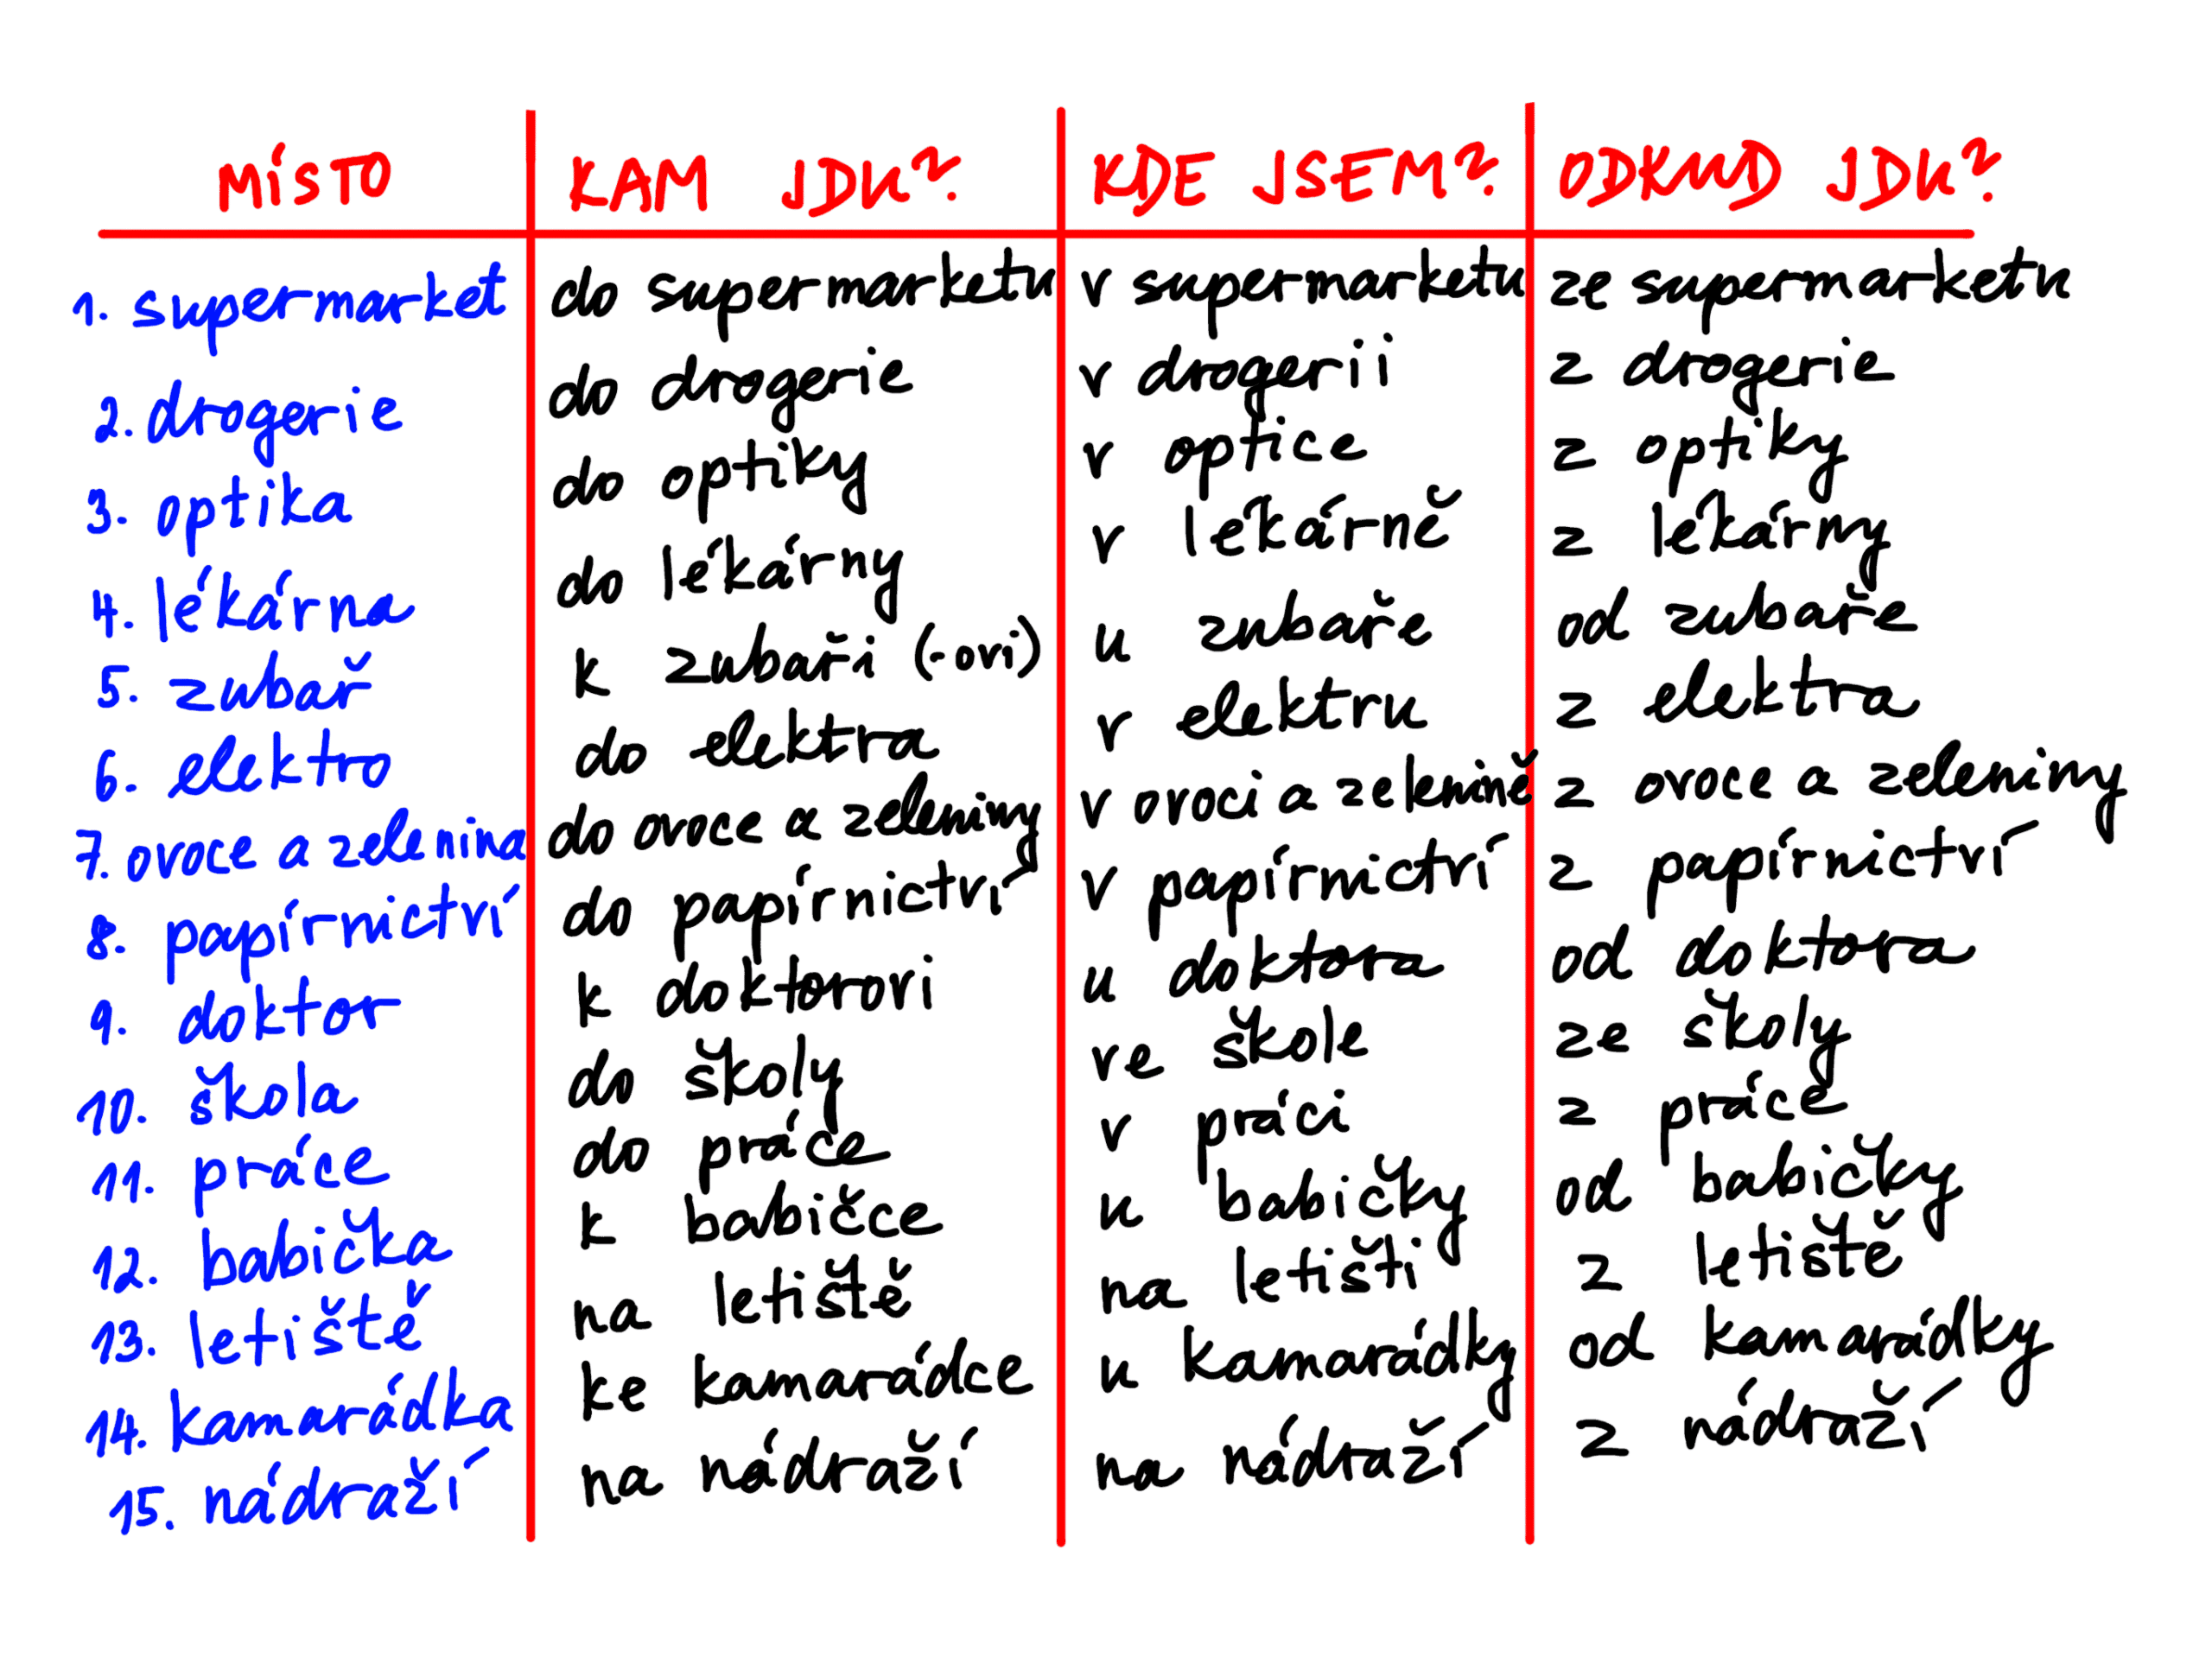 MÍSTO KAM JDU? KDE JSEM? ODKUD JDU?
1. supermarket do supermarketu v supermarketu ze supermarketu
2. drogerie do drogerie v drogerii z drogerie
3. optika do optiky v optice z optiky
4. lékárna do lékárny v lékárně z lékárny
5. zubař k zubaři (-ovi) u zubaře od zubaře
6. elektro do elektra v elektru z elektra
7. ovoce a zelenina do ovoce a zeleniny v ovoci a zelenině z ovoce a zeleniny
8. papírnictví do papírnictví v papírnictví z papírnictví
9. doktor k doktorovi u doktora od doktora
10. škola do školy ve škole ze školy
11. práce do práce v práci z práce
12. babička k babičce u babičky od babičky
13. letiště na letiště na letišti z letiště
14. kamarádka ke kamarádce u kamarádky od kamarádky
15. nádraží na nádraží na nádraží z nádraží